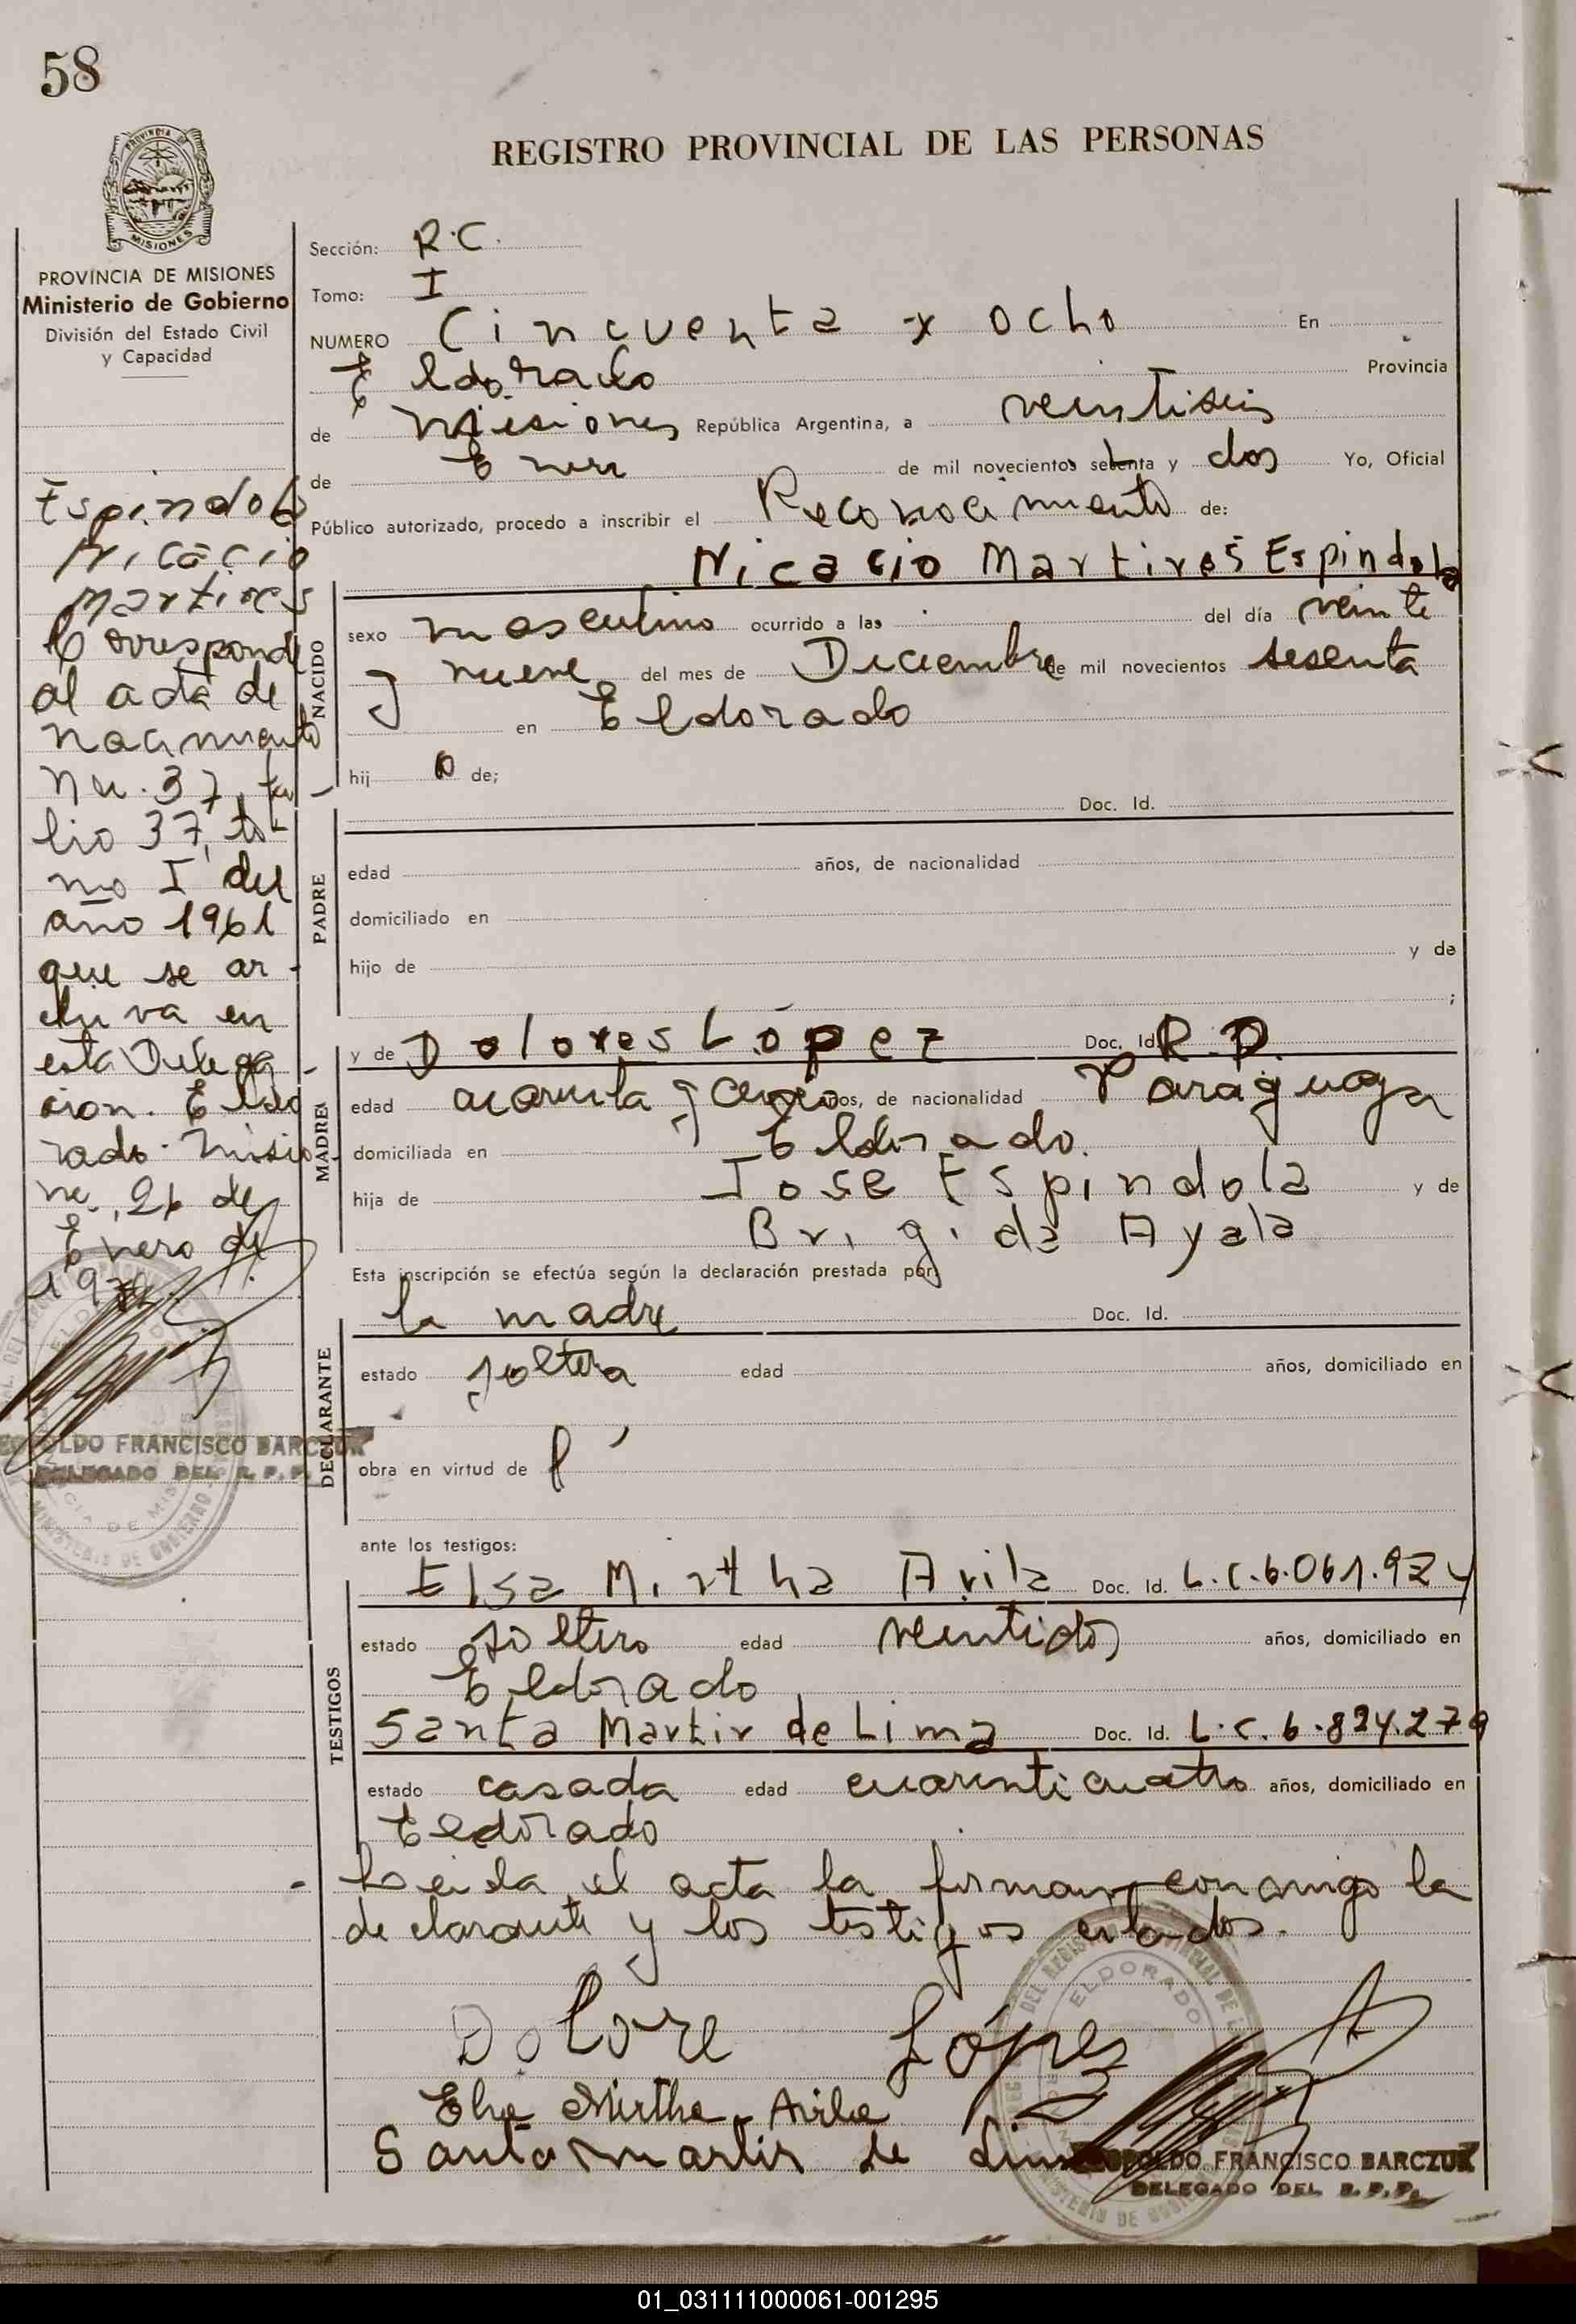 58
REGISTRO PROVINCIAL DE LAS PERSONAS
PROVINCIA DE MISIONES
MISIONES
PROVINCIA DE MISIONES
Ministerio de Gobierno
División del Estado Civil
y Capacidad
Espindola
Nicacio
Martires
Corresponde
al acta de
nacimiento
Nu. 37, fo
lio 37, to-
mo I del
año 1961
que se ar-
chiva en
esta Delega-
cion. Eldo
rado. Misio-
ne, 26 de
Enero de
1972.
LEOPOLDO FRANCISCO BARCZUK
DELEGADO DEL R. P. P.
Sección: R.C.
Tomo: I
NUMERO Cincuenta y ocho En
Eldorado Provincia
de Misiones República Argentina, a veintiseis
de Enero de mil novecientos setenta y dos Yo, Oficial
Público autorizado, procedo a inscribir el Reconocimiento de:
Nicasio Martires Espindola
NACIDO
sexo masculino ocurrido a las del día veinte
y nueve del mes de Diciembre de mil novecientos sesenta
en Eldorado
hij o de;
PADRE
Doc. Id.
edad años, de nacionalidad
domiciliado en
hijo de y de
;
MADRE
y de Dolores López Doc. Id. R.P.
edad cuarenta y cinco años, de nacionalidad Paraguaya
domiciliada en Eldorado.
hija de Jose Espindola y de
Brigida Ayala
Esta inscripción se efectúa según la declaración prestada por:
DECLARANTE
la madre Doc. Id.
estado soltera edad años, domiciliado en
obra en virtud de
ante los testigos:
TESTIGOS
Elsa Mirtha Avila Doc. Id. L.C.6.061.924
estado soltero edad veintidos años, domiciliado en
Eldorado
Santa Martir de Lima Doc. Id. L.C.6.824.279
estado casada edad cuarenticuatro años, domiciliado en
Eldorado
Leida el acta la firman conmigo la
declarante y los testigos citados.
Dolore López
Elsa Mirtha Avila
Santa Martir de Lima
ELDORADO
LEOPOLDO FRANCISCO BARCZUK
DELEGADO DEL R. P. P.
01_031111000061-001295